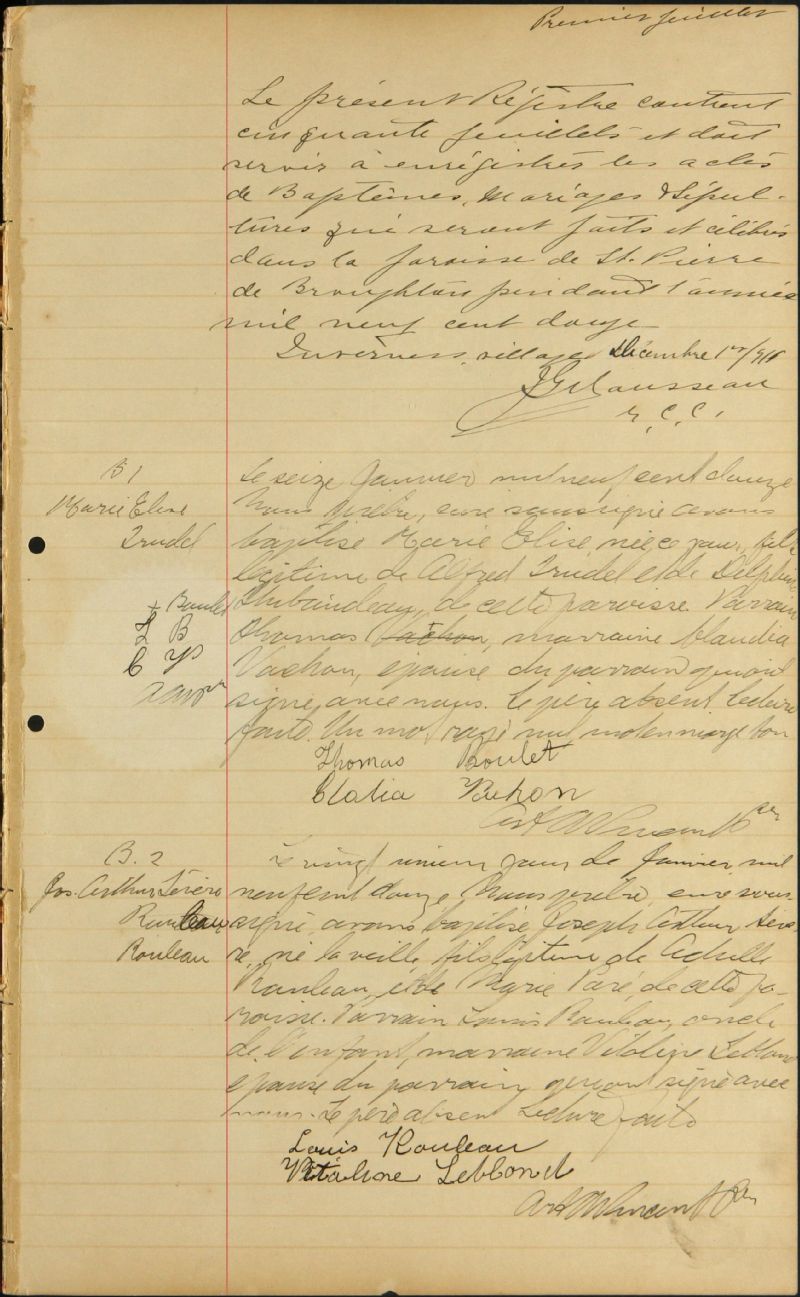 Premier feuillet
Le présent Régistre contient
cinquante feuillets et doit
servir à enrégistrer les actes
de Baptêmes, Mariages & Sépul-
tures qui seront faits et célébrés
dans la paroisse de St. Pierre
de Broughton pendant l'année
mil neuf cent douze
Inverness, village Décembre 1911
Rousseau
C. C.
B 1
Marie Elise
Trudel
Le seize Janvier mil neuf cent douze
Nous prêtre, curé soussigné avons
baptisé Marie Elise, née ce jour, fille
légitime de Alfred Trudel et de Delphine
+ Boulet
T B
C V
Thibaudeau, de cette paroisse. Parrain
Thomas Vachon, marraine Claudia
Vachon, épouse du parrain qui ont
signé avec nous. Le père absent. Lecture
faite. Un mot rayé nul mot en marge bon
Thomas Boulet
Clodia Vachon
Art Vincent ptr
B. 2
Jos. Arthur Sévère
Rouleau
Rouleau
Le vingt unième jour de Janvier mil
neuf cent douze, Nous prêtre, curé sous-
signé, avons baptisé Joseph Arthur Sévè-
re, né la veille, fils légitime de Achille
Rouleau, et de Marie Paré, de cette pa-
roisse. Parrain Louis Rouleau, oncle
de l'enfant, marraine Vitaline Leblond
épouse du parrain qui ont signé avec
nous. Le père absent Lecture faite
Louis Rouleau
Vitaline Leblond
Art Vincent Ptr